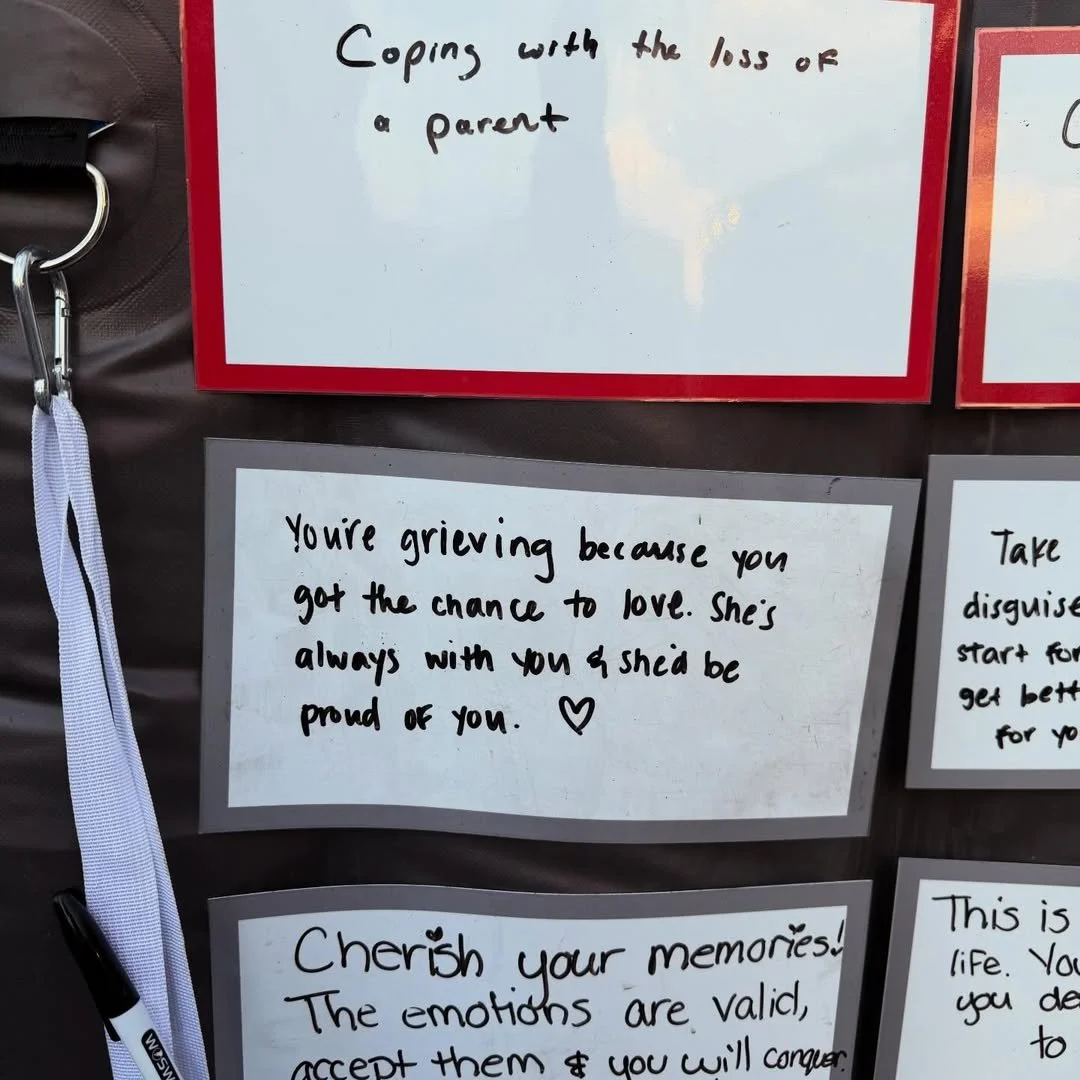 Coping with the loss of
a parent
You're grieving because you
got the chance to love. She's
always with you & she'd be
proud of you. ♡
Take
disguise
start for
get bett
for yo
Cherish your memories!
The emotions are valid,
accept them & you will conquer.
This is
life. You
you de
to